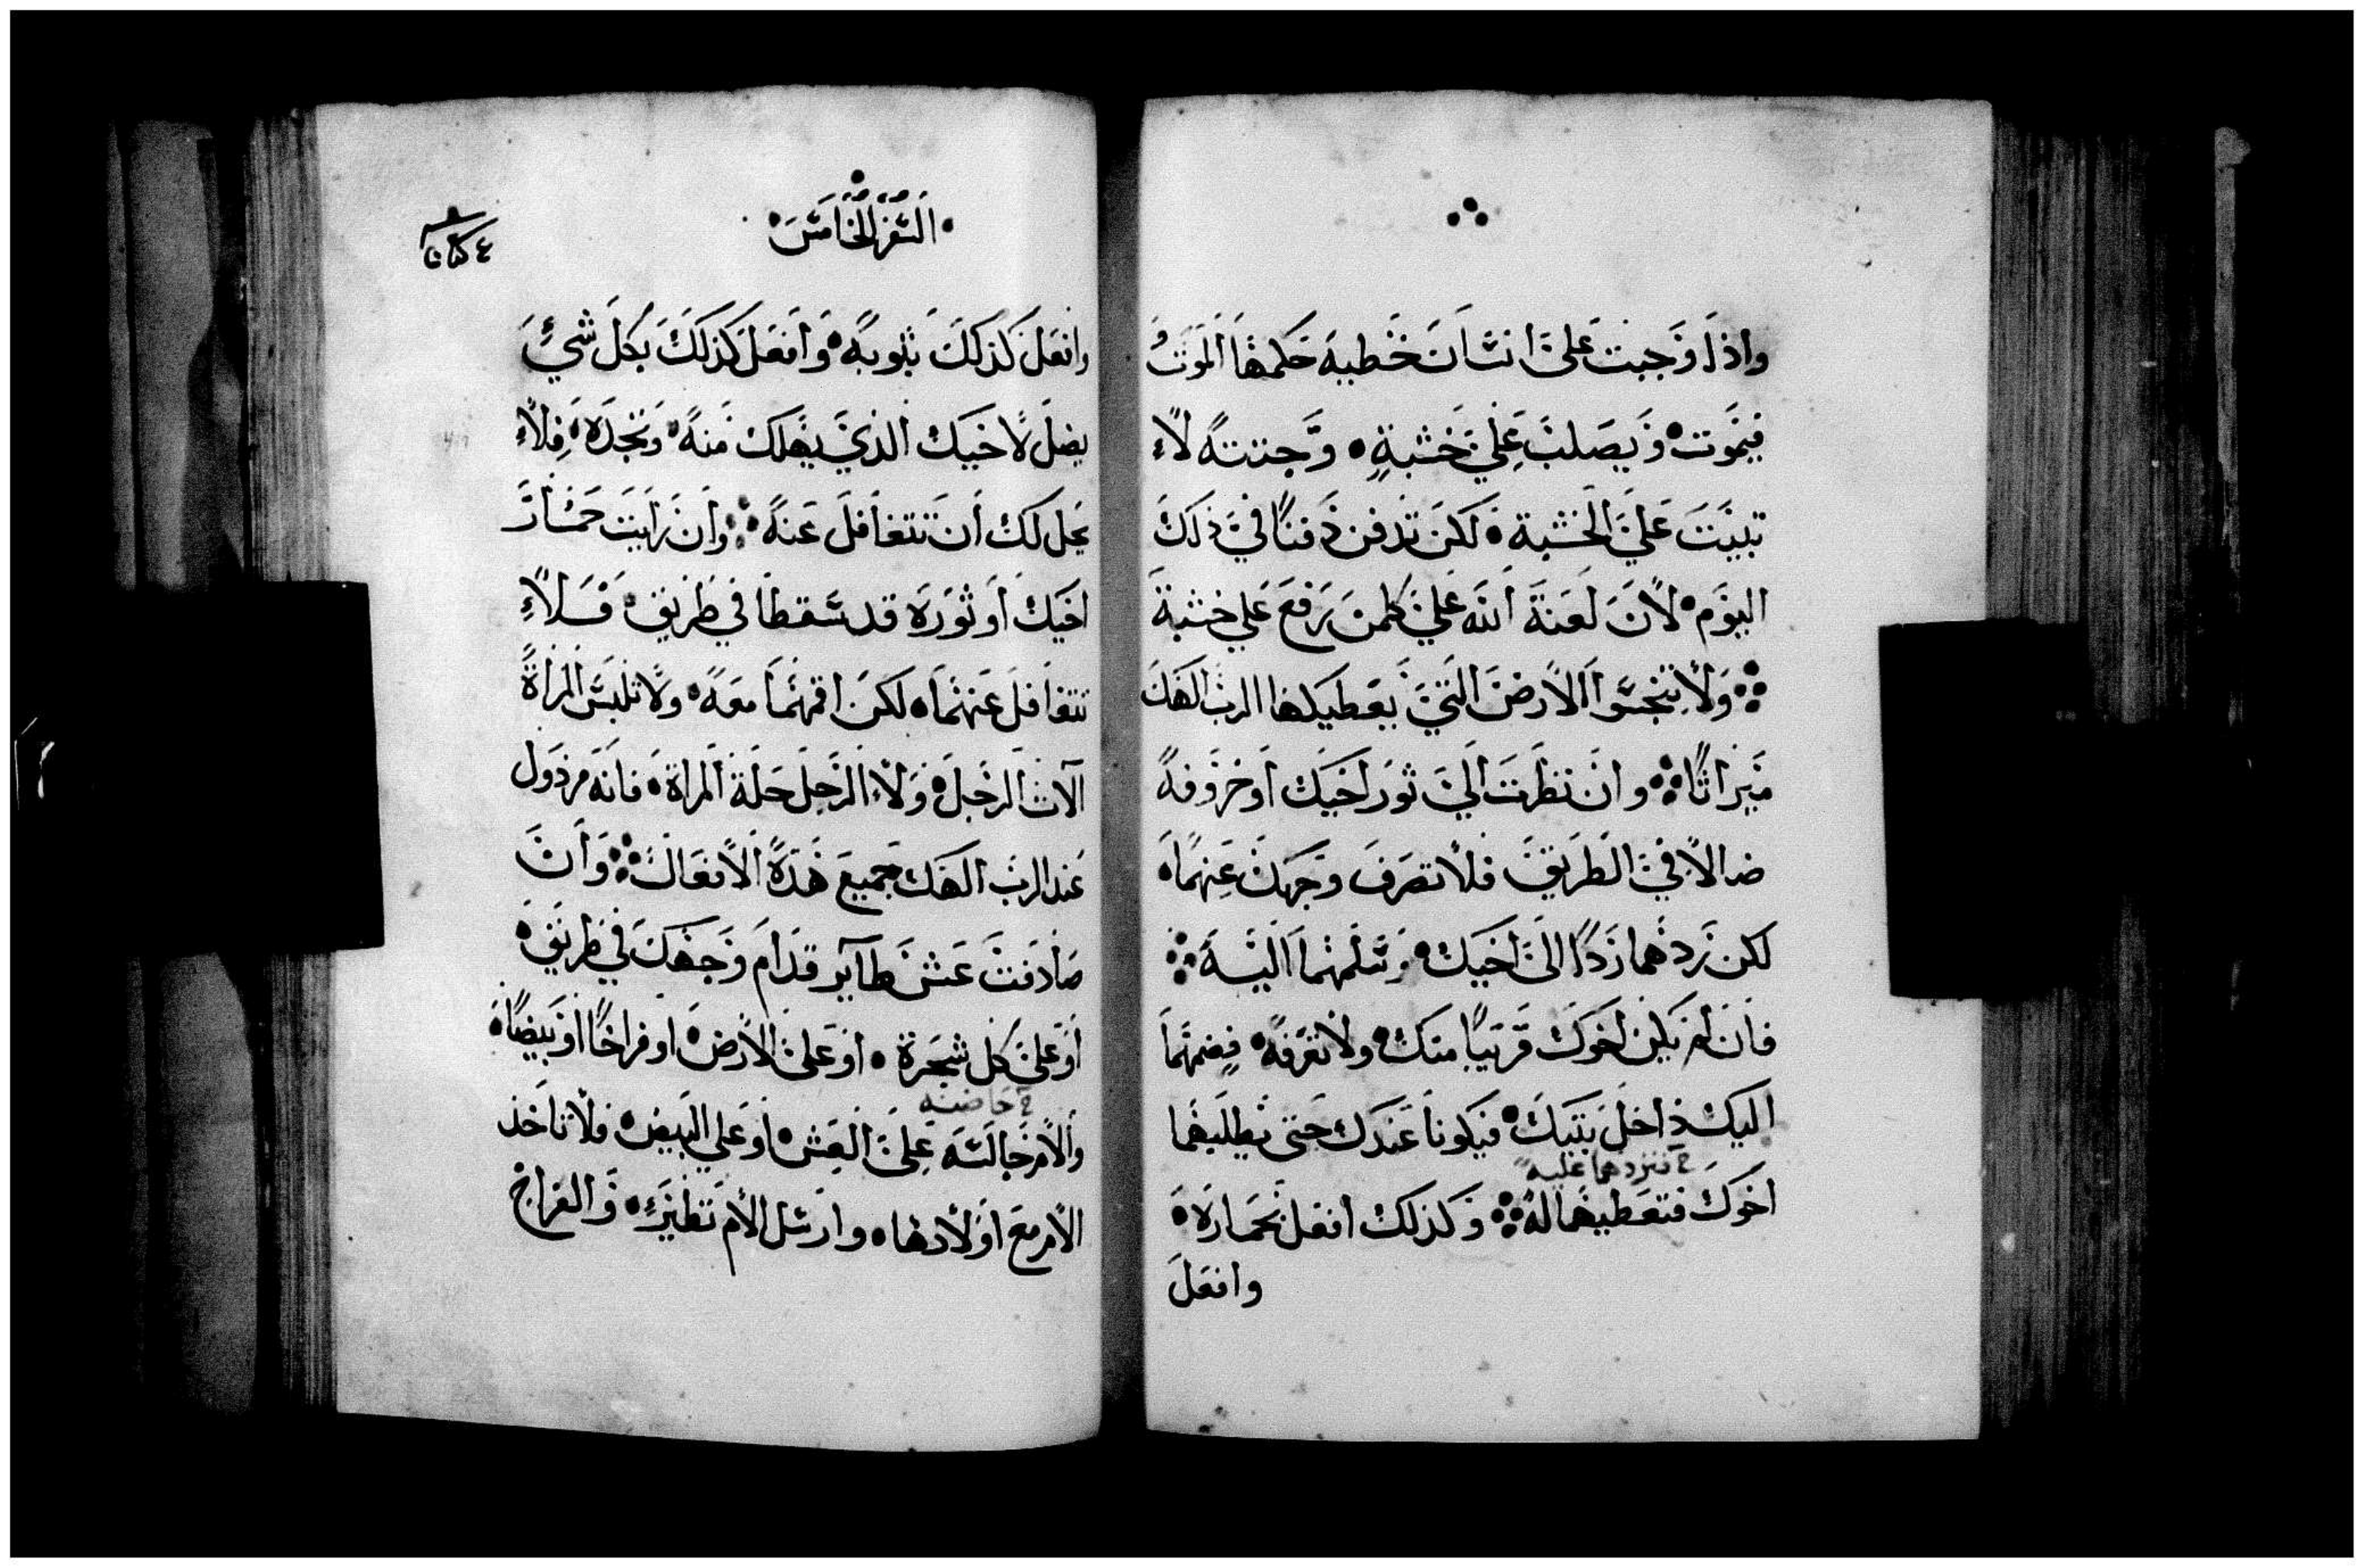 واذا وجبت على انسان خطيه حكمها الموت
فيموت ويصلب على خشبة وجثته لا
تبيت على الخشبة لكن تدفن دفنا في ذلك
اليوم لان لعنة الله على كلمن يرفع على خشبة
ولا تنجسوا الارض التي يعطيكها الرب الهك
ميراثا وان نظرت الي ثور اخيك او خروفه
ضالا في الطريق فلا تصرف وجهك عنهما
لكن ردهما ردا الى اخيك وسلمهما اليه
فان لم يكن اخوك قريبا منك ولا تعرفه فضمهما
اليك داخل بيتك فيكونا عندك حتى يطلبهما
خ فتردهما عليه
اخوك فتعطيهما له وكذلك افعل بحماره
وافعل
السفر الخامس
وافعل كذلك بثوبه وافعل كذلك بكل شيء
يضل لاخيك الذي يهلك منه وتجده فلا
يحل لك ان تتغافل عنه وان رايت حمار
اخيك او ثوره قد سقطا في طريق فلا
تتغافل عنهما لكن اقمهما معه ولا تلبس المراة
الات الرجل ولا الرجل حلة المراة فانه مرذول
عند الرب الهك جميع هذه الافعال وان
صادفت عش طاير قدام وجهك في طريق
او على كل شجرة او على الارض او فراخا او بيضا
خ حاضنه
والام جالسه على العش او علي البيض فلا تاخذ
الام مع اولادها وارسل الام تطير والفراخ